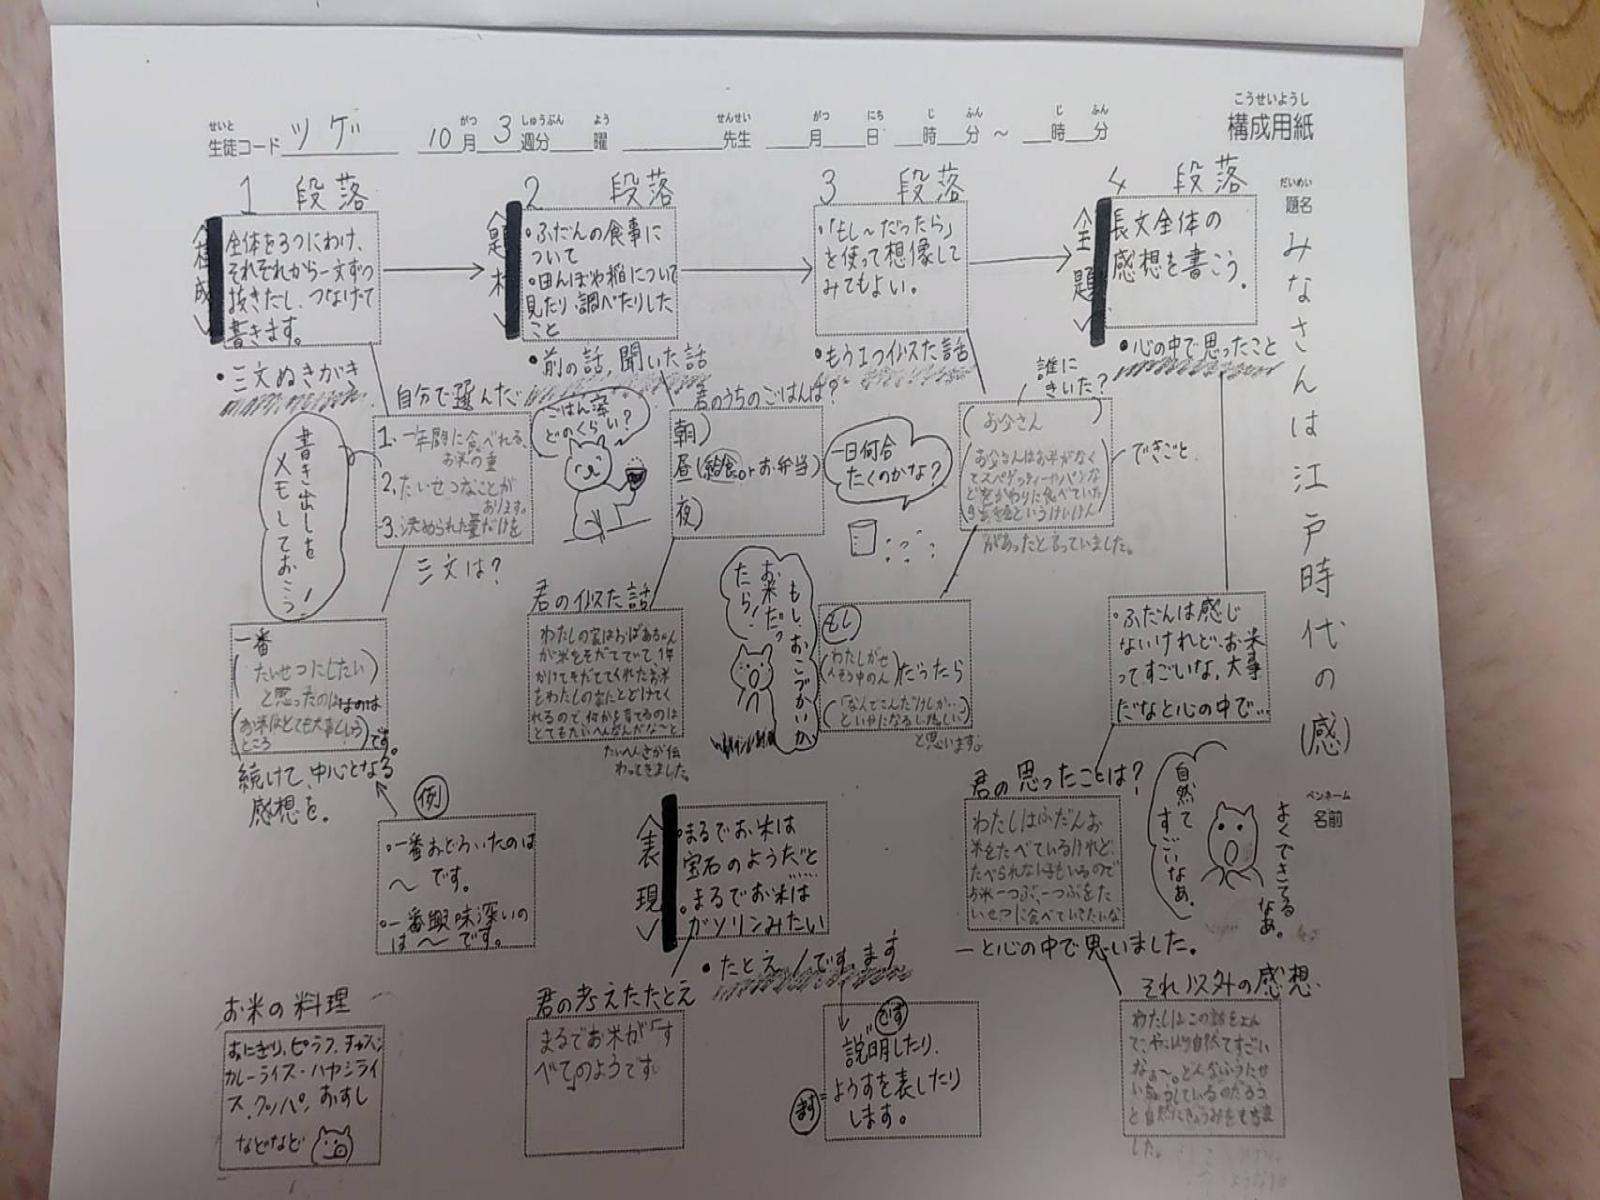 こうせいようし
構成用紙
せいと
生徒コード ツゲ
がつ しゅうぶん よう
10月 3週分 曜
せんせい
先生
がつ にち じ ふん じ ふん
月 日 時 分 ～ 時 分
だいめい
題名
みなさんは江戸時代の(感)
ペンネーム
名前
1 段落
<構成>
全体を3つにわけ、
それぞれから一文ずつ
抜きだし、つなげて
書きます。
・三文ぬきがき
自分で選んだ
1. 一年間に食べれる、
お米の量
2. たいせつなことが
あります。
3. 決められた量だけを
三文は？
書き出しを
メモしておこう！
一番
(たいせつにしたい)
と思ったのは
です。
続けて、中心となる
感想を。
例
・一番おどろいたのは
～です。
・一番興味深いの
は～です。
お米の料理
おにぎり、ピラフ、チャーハン
カレーライス・ハヤシライ
ス、クッパ、おすし
などなど
2 段落
<題材>
・ふだんの食事に
ついて
・田んぼや稲について
見たり、調べたりした
こと
・前の話、聞いた話
ごはん茶
どのくらい？
君のうちのごはんは？
朝)
昼(給食orお弁当)
夜)
君の似た話
わたしの家はおばあちゃん
が米をそだてていて、1年
かけてそだててくれたお米
をわたしの家にとどけてく
れるので、何かを育てるのは
とてもたいへんなんだな～と
たいへんさが伝
わってきました。
<表現>
・まるでお米は
宝石のようだと
・まるでお米は
ガソリンみたい
・たとえ/です、ます
君の考えたたとえ
まるでお米が「す
べて」のようです。
です
説明したり、
ます
ようすを表したり
します。
3 段落
・「もし～だったら」
を使って想像して
みてもよい。
・もう1つ似た話
誰に
きいた？
(お父さん)
お父さんはお米がなく
てスパゲッティーやパンな
どをかわりに食べていた
があったと言っていました。
できごと
一日何合
たくのかな？
もし、おこづかいが
お米だっ
たら！
もし
(わたしがせ
んそう中の人)だったら
と思います。
4 段落
<主題>
長文全体の
感想を書こう。
・心の中で思ったこと
・ふだんは感じ
ないけれど、お米
ってすごいな。大事
だなと心の中で…
君の思ったことは？
わたしはふだんお
米をたべているけれど、
たべられない子もいるので
お米一つぶ、一つぶをた
いせつに食べていきたいな
ーと心の中で思いました。
自然て
すごいなあ。
よくできてる
なあ。
それ以外の感想
わたしはこの話をよん
で、やっぱり自然てすごい
なぁ～。
した。